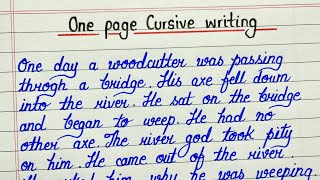 One page Cursive writing
One day a woodcutter was passing
throgh a bridge. His axe fell down
into the river. He sat on the bridge
and began to weep. He had no
other axe. The river god took pity
on him. He came out of the river
him why he was weeping.